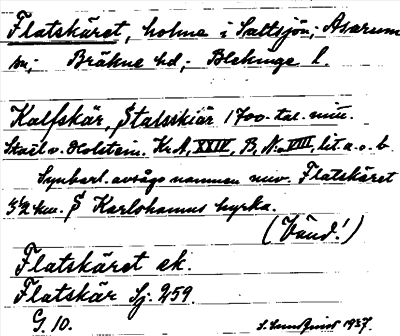 Flatskäret, holme i Saltsjön; Asarum
sn; Bräkne hd; Blekinge l.
Kalfskär, Flatsskiär 1700-tal. mün.
Stael v. Holstein. Kr.A, XXIV, B, N. VIII, lit. a. o. b.
Synbarl. avsågs namnen nuv. Flatskäret
3½ km. S Karlshamns kyrka.
(Vänd!)
Flatskäret ek.
Flatskär Sj. 259.
G. 10.
S. Lundquist 1937.